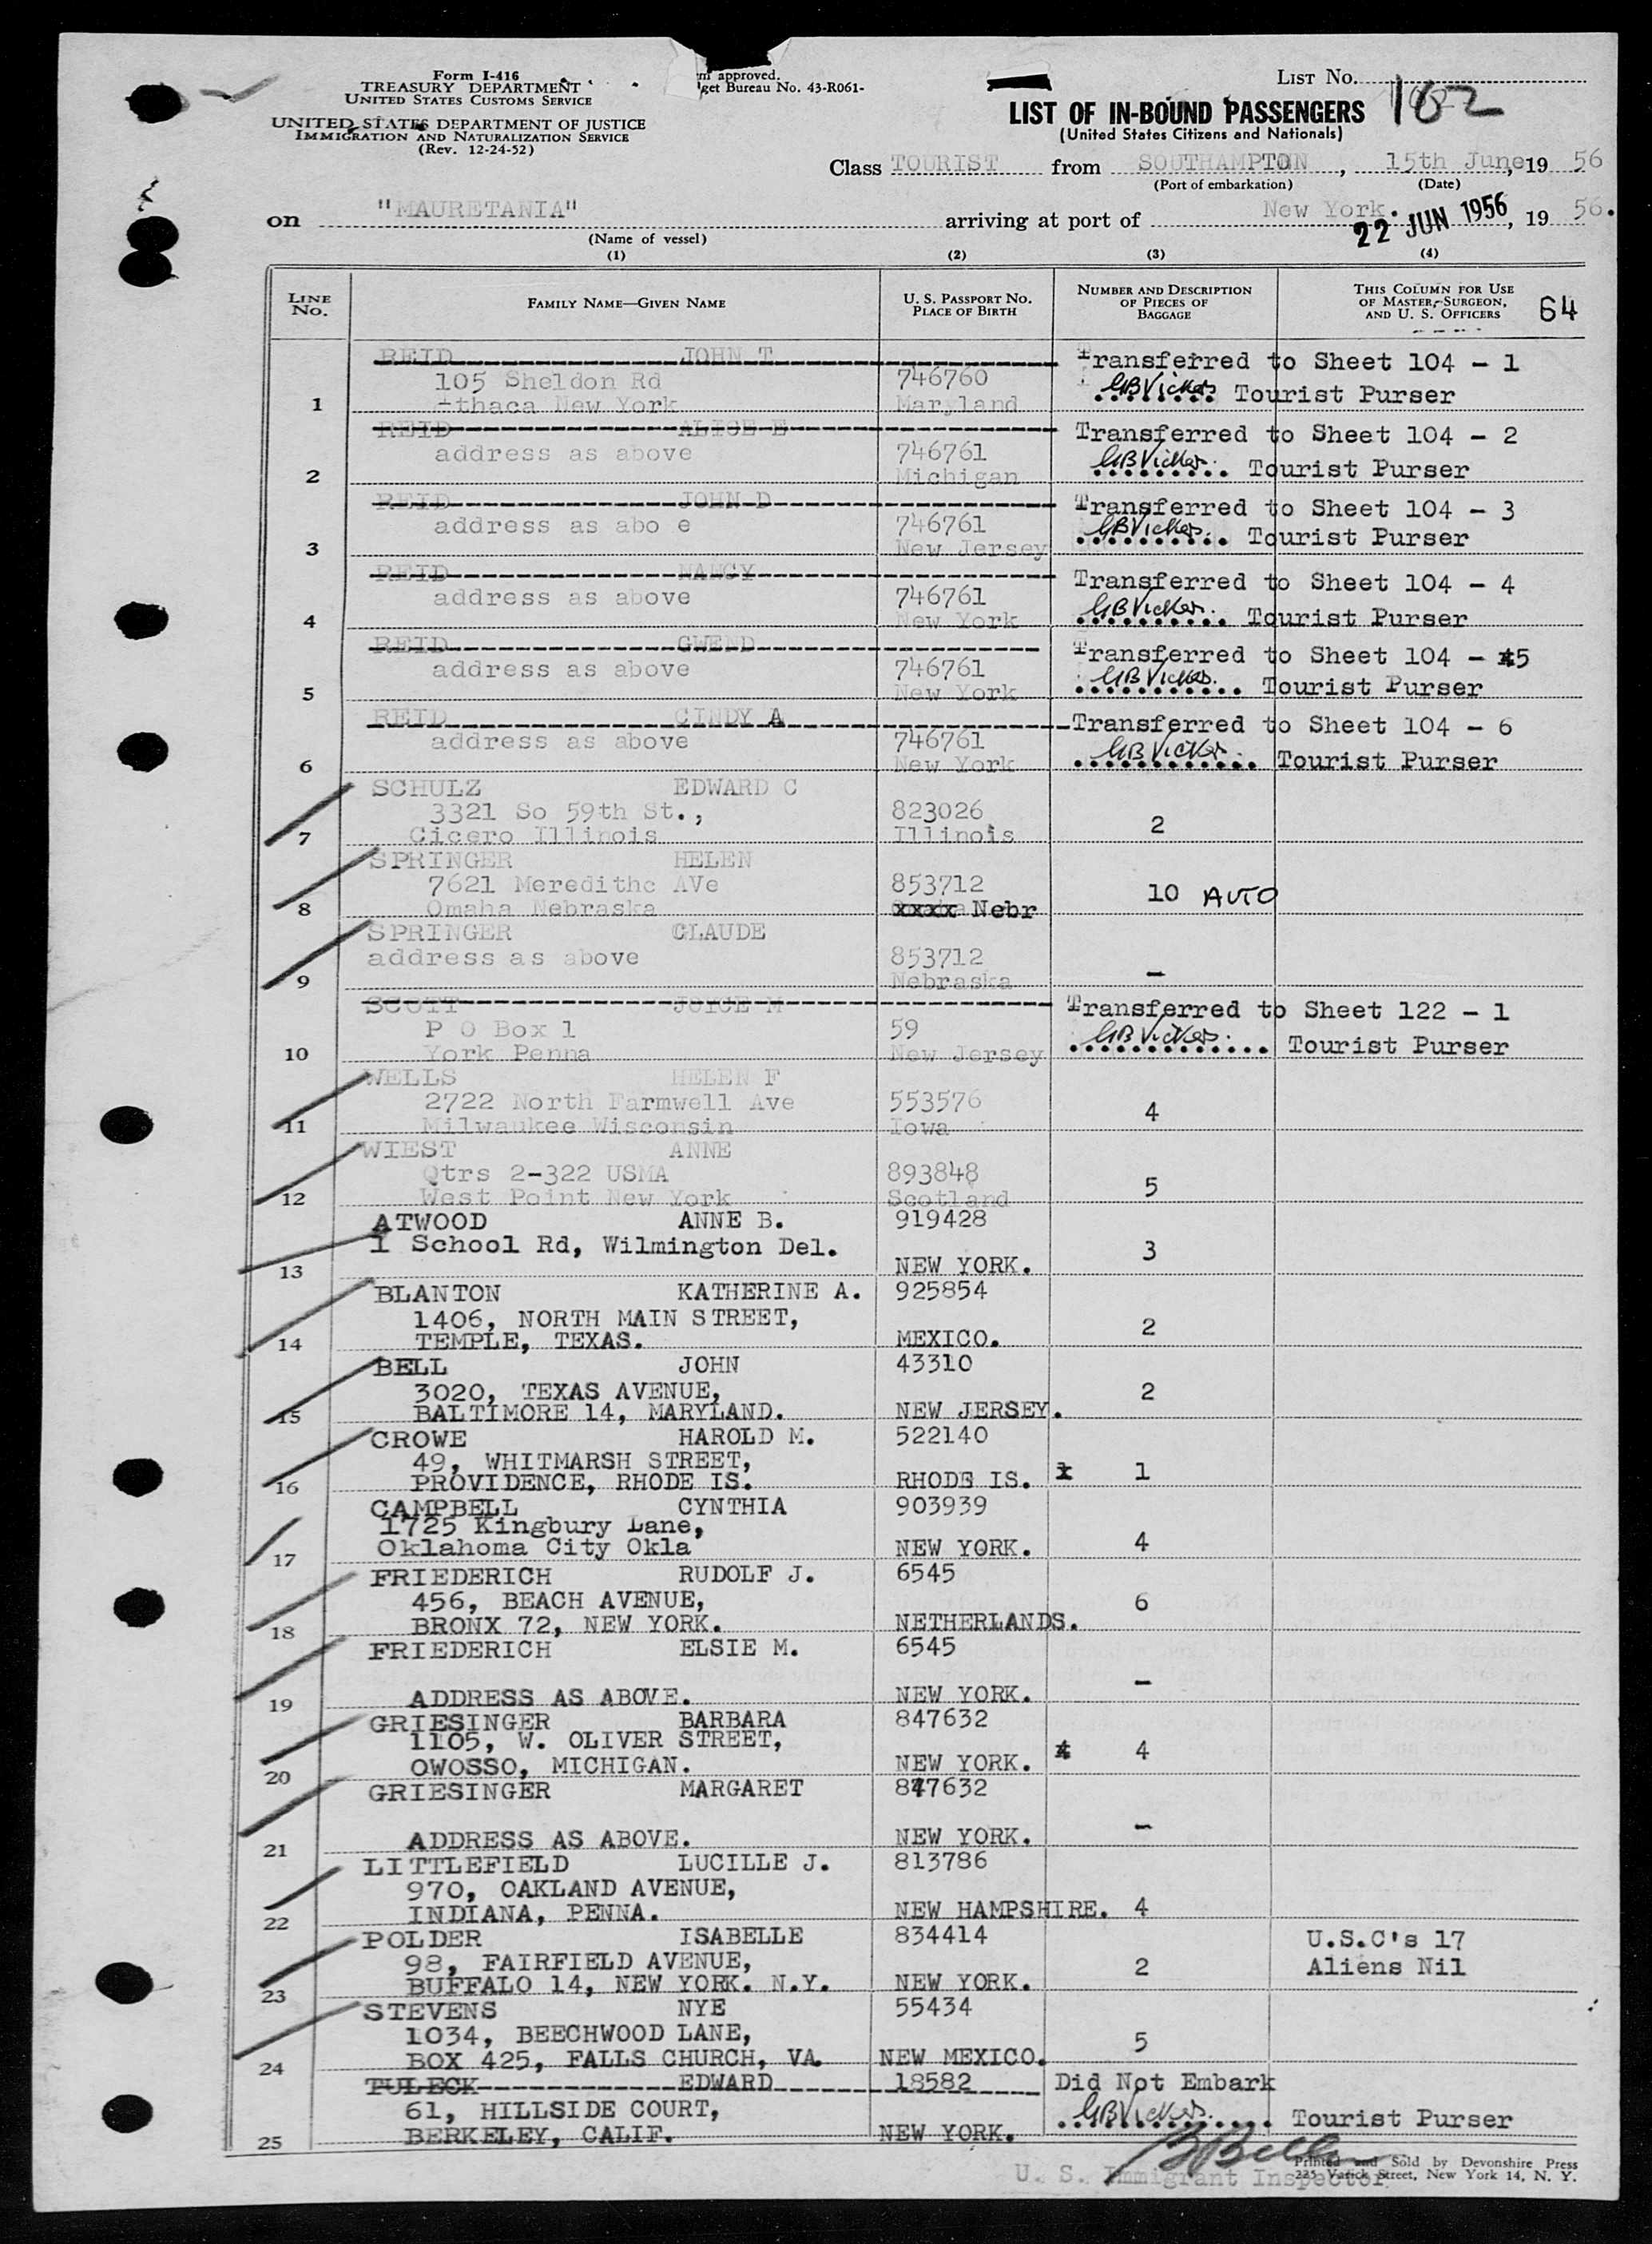 Form I-416
TREASURY DEPARTMENT
UNITED STATES CUSTOMS SERVICE
UNITED STATES DEPARTMENT OF JUSTICE
IMMIGRATION AND NATURALIZATION SERVICE
(Rev. 12-24-52)
approved.
get Bureau No. 43-R061-
LIST No. 182
LIST OF IN-BOUND PASSENGERS
(United States Citizens and Nationals)
Class TOURIST from SOUTHAMPTON, 15th June, 19 56
(Port of embarkation) (Date)
on "MAURETANIA" arriving at port of New York. 22 JUN 1956, 19 56.
(Name of vessel)
(1) (2) (3) (4)
LINE No. FAMILY NAME—GIVEN NAME U. S. PASSPORT NO. PLACE OF BIRTH NUMBER AND DESCRIPTION OF PIECES OF BAGGAGE THIS COLUMN FOR USE OF MASTER, SURGEON, AND U. S. OFFICERS 64
REID JOHN T Transferred to Sheet 104 - 1
105 Sheldon Rd 746760 GBVickers Tourist Purser
1 Ithaca New York Maryland
REID ALICE E Transferred to Sheet 104 - 2
address as above 746761 GBVickers. Tourist Purser
2 Michigan
REID JOHN D Transferred to Sheet 104 - 3
address as abo e 746761 GBVickers. Tourist Purser
3 New Jersey
REID NANCY Transferred to Sheet 104 - 4
address as above 746761 GBVickers. Tourist Purser
4 New York
REID GWEND Transferred to Sheet 104 - 5
address as above 746761 GBVickers. Tourist Purser
5 New York
REID CINDY A Transferred to Sheet 104 - 6
address as above 746761 GBVickers. Tourist Purser
6 New York
SCHULZ EDWARD C
3321 So 59th St., 823026 2
7 Cicero Illinois Illinois
SPRINGER HELEN
7621 Meredithc AVe 853712 10 AUTO
8 Omaha Nebraska xxxx Nebr
SPRINGER CLAUDE
address as above 853712 -
9 Nebraska
SCOTT JOYCE M Transferred to Sheet 122 - 1
P O Box 1 59 GBVickers. Tourist Purser
10 York Penna New Jersey
WELLS HELEN F
2722 North Farmwell Ave 553576 4
11 Milwaukee Wisconsin Iowa
WIEST ANNE
Qtrs 2-322 USMA 893848 5
12 West Point New York Scotland
ATWOOD ANNE B. 919428
1 School Rd, Wilmington Del. 3
13 NEW YORK.
BLANTON KATHERINE A. 925854
1406, NORTH MAIN STREET, 2
14 TEMPLE, TEXAS. MEXICO.
BELL JOHN 43310
3020, TEXAS AVENUE, 2
15 BALTIMORE 14, MARYLAND. NEW JERSEY.
CROWE HAROLD M. 522140
49, WHITMARSH STREET, 1
16 PROVIDENCE, RHODE IS. RHODE IS.
CAMPBELL CYNTHIA 903939
1725 Kingbury Lane,
17 Oklahoma City Okla NEW YORK. 4
FRIEDERICH RUDOLF J. 6545
456, BEACH AVENUE, 6
18 BRONX 72, NEW YORK. NETHERLANDS.
FRIEDERICH ELSIE M. 6545
19 ADDRESS AS ABOVE. NEW YORK. -
GRIESINGER BARBARA 847632
1105, W. OLIVER STREET, 4
20 OWOSSO, MICHIGAN. NEW YORK.
GRIESINGER MARGARET 847632
21 ADDRESS AS ABOVE. NEW YORK. -
LITTLEFIELD LUCILLE J. 813786
970, OAKLAND AVENUE,
22 INDIANA, PENNA. NEW HAMPSHIRE. 4
POLDER ISABELLE 834414 U.S.C's 17
98, FAIRFIELD AVENUE, 2 Aliens Nil
23 BUFFALO 14, NEW YORK. N.Y. NEW YORK.
STEVENS NYE 55434
1034, BEECHWOOD LANE, 5
24 BOX 425, FALLS CHURCH, VA. NEW MEXICO.
TULECK EDWARD 18582 Did Not Embark
61, HILLSIDE COURT, GBVickers. Tourist Purser
25 BERKELEY, CALIF. NEW YORK.
U. S. Immigrant Inspector
Printed and Sold by Devonshire Press
225 Varick Street, New York 14, N. Y.